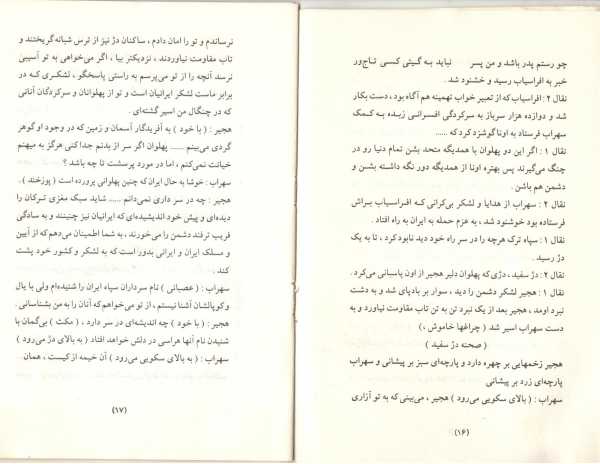 چو رستم پدر باشد و من پسر نباید به گیتی کسی تاج‌ور
خبر به افراسیاب رسید و خشنود شد .
نقال ۲ : افراسیاب که از تعبیر خواب تهمینه هم آگاه بود ، دست بکار
شد و دوازده هزار سرباز به سرکردگی افسرانی زبده به کمک
سهراب فرستاده به اونا گوشزد کرد که ......
نقال ۱ : اگر این دو پهلوان با همدیگه متحد بشن تمام دنیا رو در
چنگ می‌گیرند پس بهتره اونا از همدیگه دور نگه داشته بشن و
دشمن هم باشن .
نقال ۲ : سهراب از هدایا و لشکر بی‌کرانی که افراسیاب براش
فرستاده بود خوشنود شد ، به عزم حمله به ایران به راه افتاد .
نقال ۱ : سپاه ترک هرچه را در سر راه خود دید نابود کرد ، تا به یک
دژ رسید .
نقال ۲ : دژ سفید ، دژی که پهلوان دلیر هجیر از اون پاسبانی می‌کرد .
نقال ۱ : هجیر لشکر دشمن را دید ، سوار بر بادپای شد و به دشت
نبرد اومد ، هجیر بعد از یک نبرد تن به تن تاب مقاومت نیاورد و به
دست سهراب اسیر شد ( چراغها خاموش ، )
( صحنه دژ سفید )
هجیر زخمهایی بر چهره دارد و پارچه‌ای سبز بر پیشانی و سهراب
پارچه‌ای زرد بر پیشانی
سهراب : ( بالای سکویی می‌رود ) هجیر ، می‌بینی که به تو آزاری
(۱۶)
نرساندم و تو را امان دادم ، ساکنان دژ نیز از ترس شبانه گریختند و
تاب مقاومت نیاوردند ، نزدیکتر بیا ، اگر می‌خواهی به تو آسیبی
نرسد آنچه را از تو می‌پرسم به راستی پاسخگو ، لشکری که در
برابر ماست لشکر ایرانیان است و تو از پهلوانان و سرکردگان آنانی
که در چنگال من اسیر گشته‌ای .
هجیر : ( با خود ) به آفریدگار آسمان و زمین که در وجود او گوهر
گردی می‌بینم ...... پهلوان اگر سر از بدنم جدا کنی هرگز به میهنم
خیانت نمی‌کنم ، اما در مورد پرسشت تا چه باشد ؟
سهراب : خوشا به حال ایران که چنین پهلوانی پرورده است ( پوزخند ) .
هجیر : چه در سر داری نمی‌دانم ...... شاید سبک مغزی ترکان را
دیده‌ای و پیش خود اندیشیده‌ای که ایرانیان نیز چنینند و به سادگی
فریب ترفند دشمن را می‌خورند ، به شما اطمینان می‌دهم که از آیین
و مسلک ایران و ایرانی بدور است که به لشکر و کشور خود پشت
کند .
سهراب : ( عصبانی ) نام سرداران سپاه ایران را شنیده‌ام ولی با یال
و کوپالشان آشنا نیستم ، از تو می‌خواهم که آنان را به من بشناسانی .
هجیر : ( با خود ) چه اندیشه‌ای در سر دارد ، ( مکث ) بی‌گمان با
شنیدن نام آنها هراسی در دلش خواهد افتاد ( به بالای دژ می‌رود )
سهراب : ( به بالای سکویی می‌رود ) آن خیمه از کیست ، همان
(۱۷)